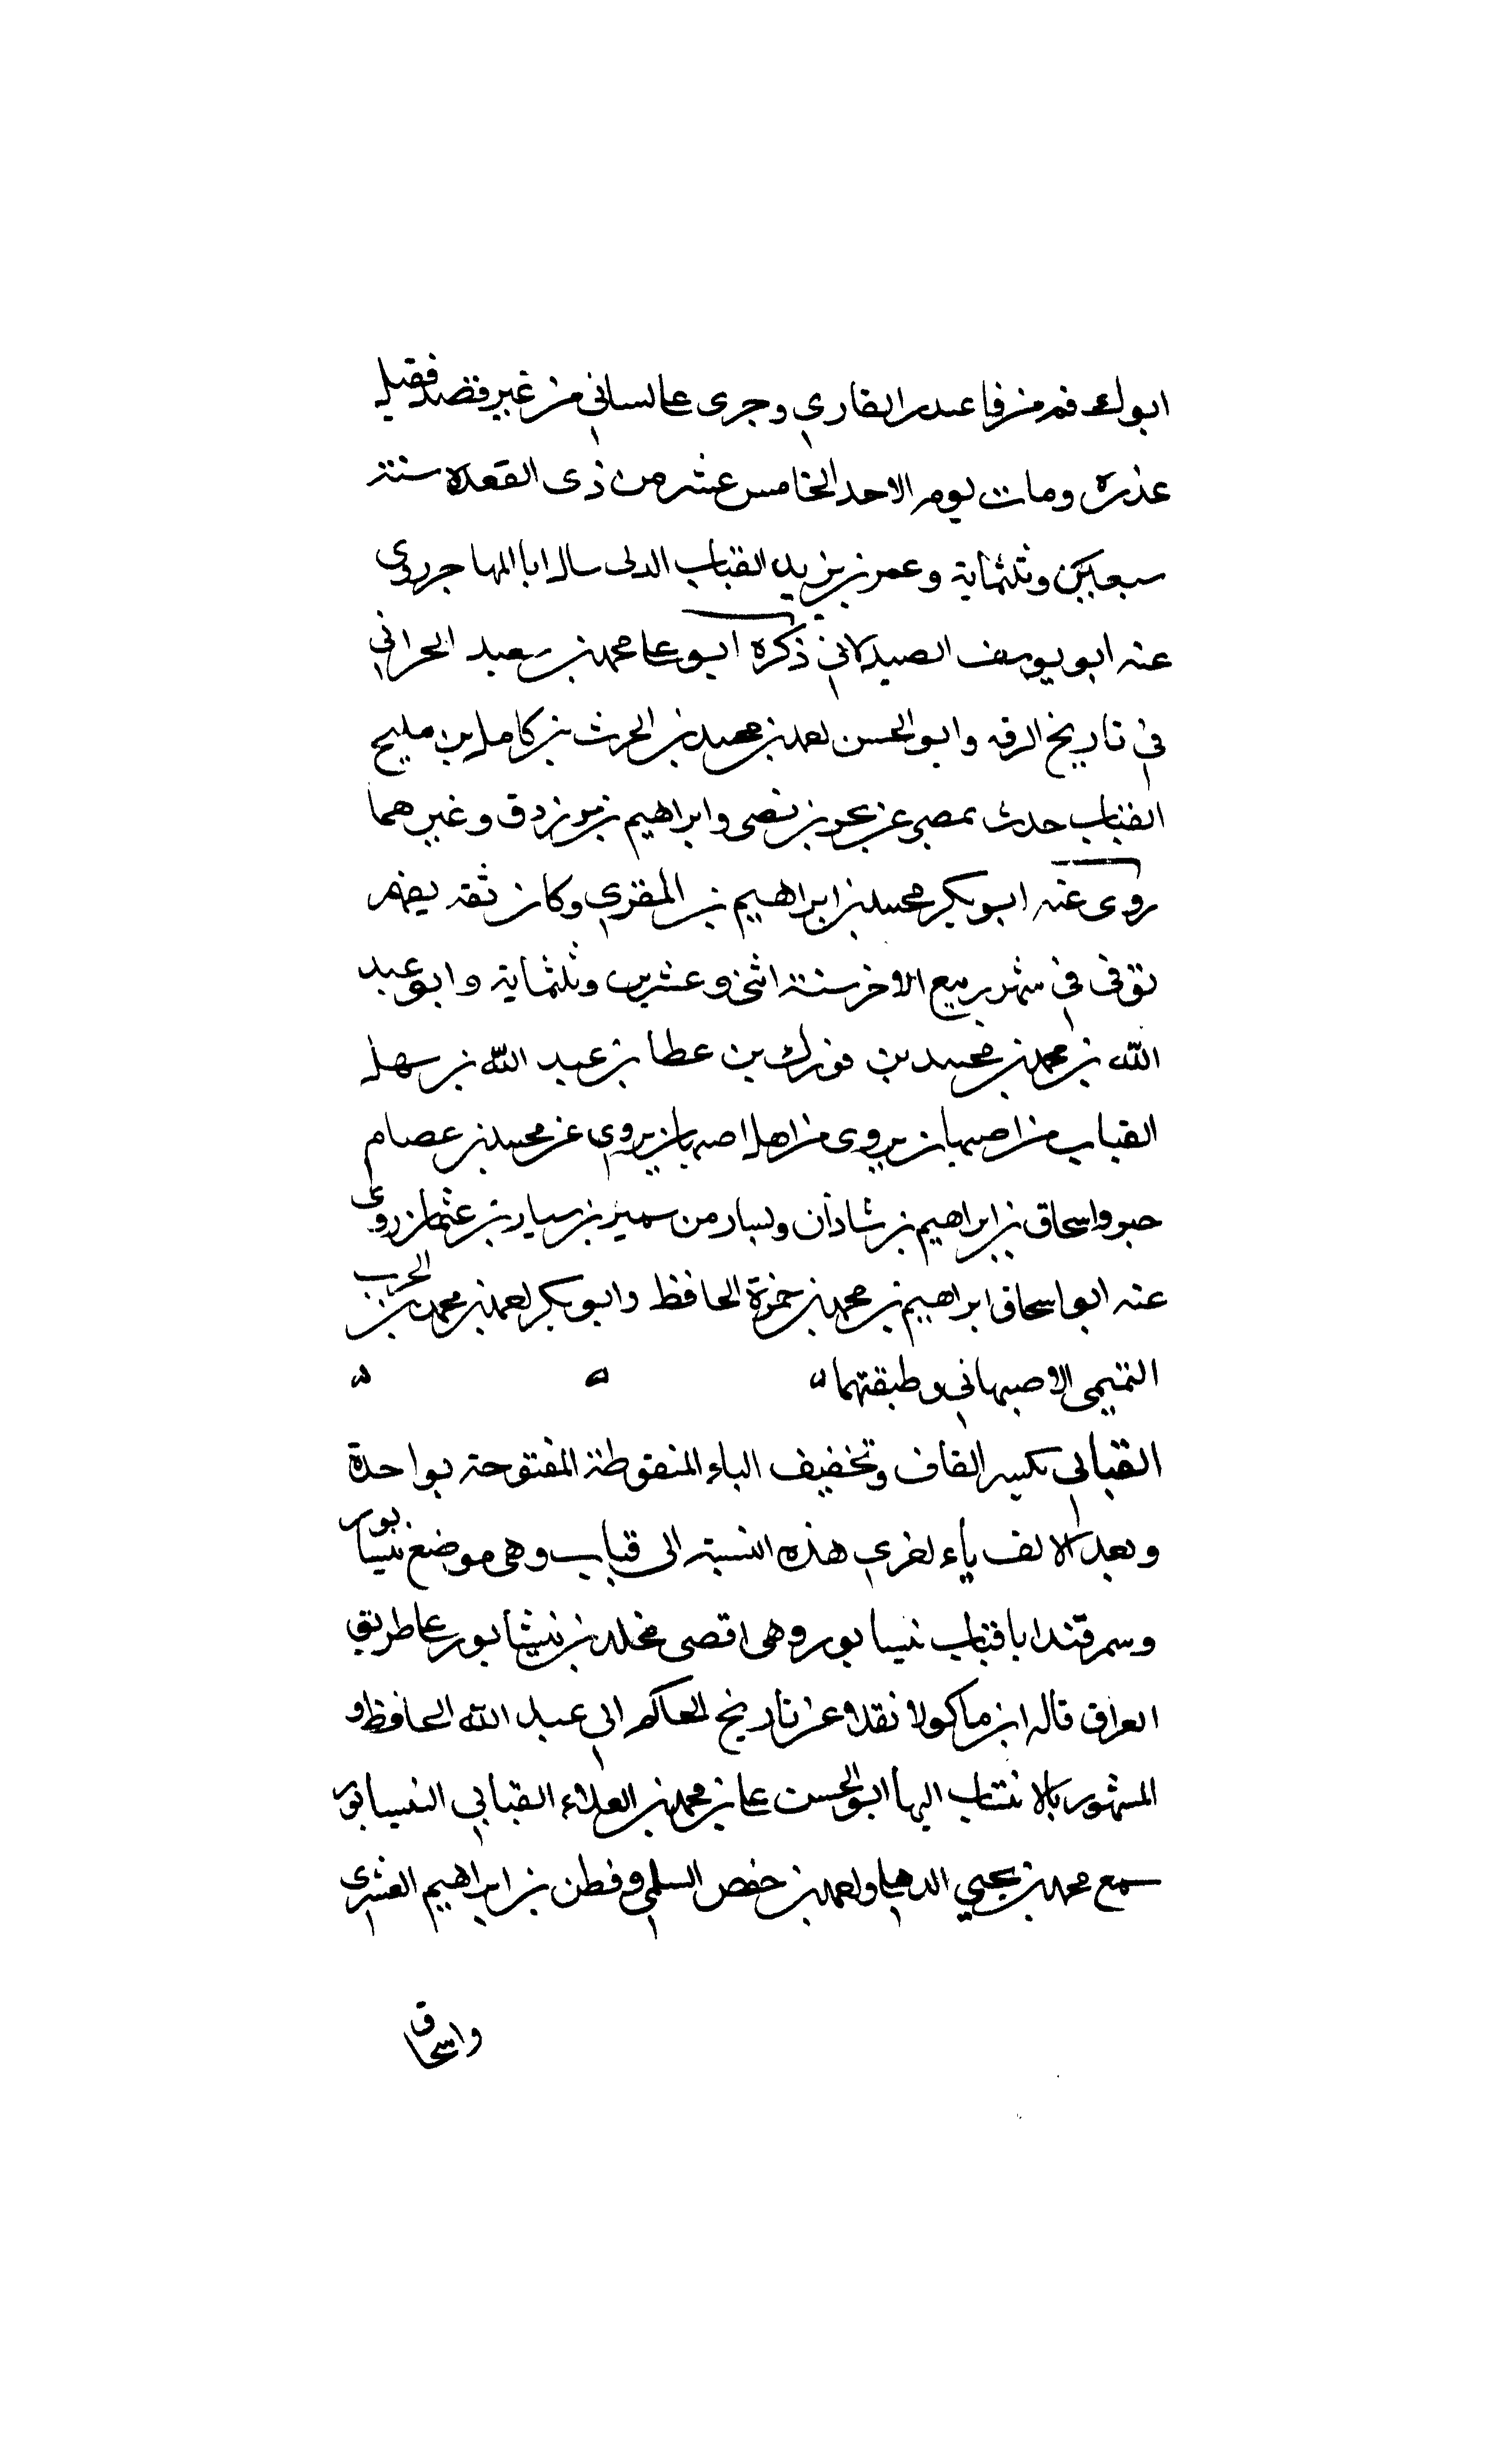 ابوك فمر من فا عبدر القاري وجرى على لساني من غير قصد فقيل
عذره ومات يوم الاحد الخامس عشر من ذى القعدة سنة
سبعين وثلثماية وعمر بن يزيد القباب الدلى سال ابا المهاجر روى
عنه ابو يوسف الصيدلاني ذكره ابو على محمد بن سعيد الحراني
في تاريخ الرقه وابو الحسن احمد بن محمد بن الحرث بن كامل بن مليح
القباب حدث بمصر عن بحر بن نصر وابراهيم بن مرزوق وغيرهما
روى عنه ابو بكر محمد بن ابراهيم بن المقري وكان ثقه يفهم
توفى في شهر ربيع الاخر سنة اثنين وعشرين وثلثماية وابو عبد
الله بن محمد بن محمد بن فورك بن عطا بن عبد الله بن سهل
القباب من اصبهان يروى من اهل اصبهان يروي عن محمد بن عصام
حبو واسحاق بن ابراهيم بن شاذان ولسار من سمير بن سيار بن عثمان روى
عنه ابو اسحاق ابراهيم بن محمد بن حمزة الحافظ وابو بكر احمد بن محمد بن الحرب
التميمى الاصبهاني وطبقتهما
القبابى بكسر القاف وتخفيف الباء المنقوطة المفتوحة بواحدة
وبعد الالف ياء اخري هذه النسبة الى قباب وهى موضع بنيسابور
وسمرقند ابا قباب نيسابور وهى اقصى محلة بن نيشابور على طريق
العراق قاله ابن ماكولا نقلا عن تاريخ الحاكم ابي عبد الله الحافظ و
المشهور بالانتساب اليها ابو الحسن على بن محمد بن العلاء القبابي النيسابور
سمع محمد بن يحيي الدهلى واحمد بن حفص السلمي وقطن بن ابراهيم القشرى
واسحاق